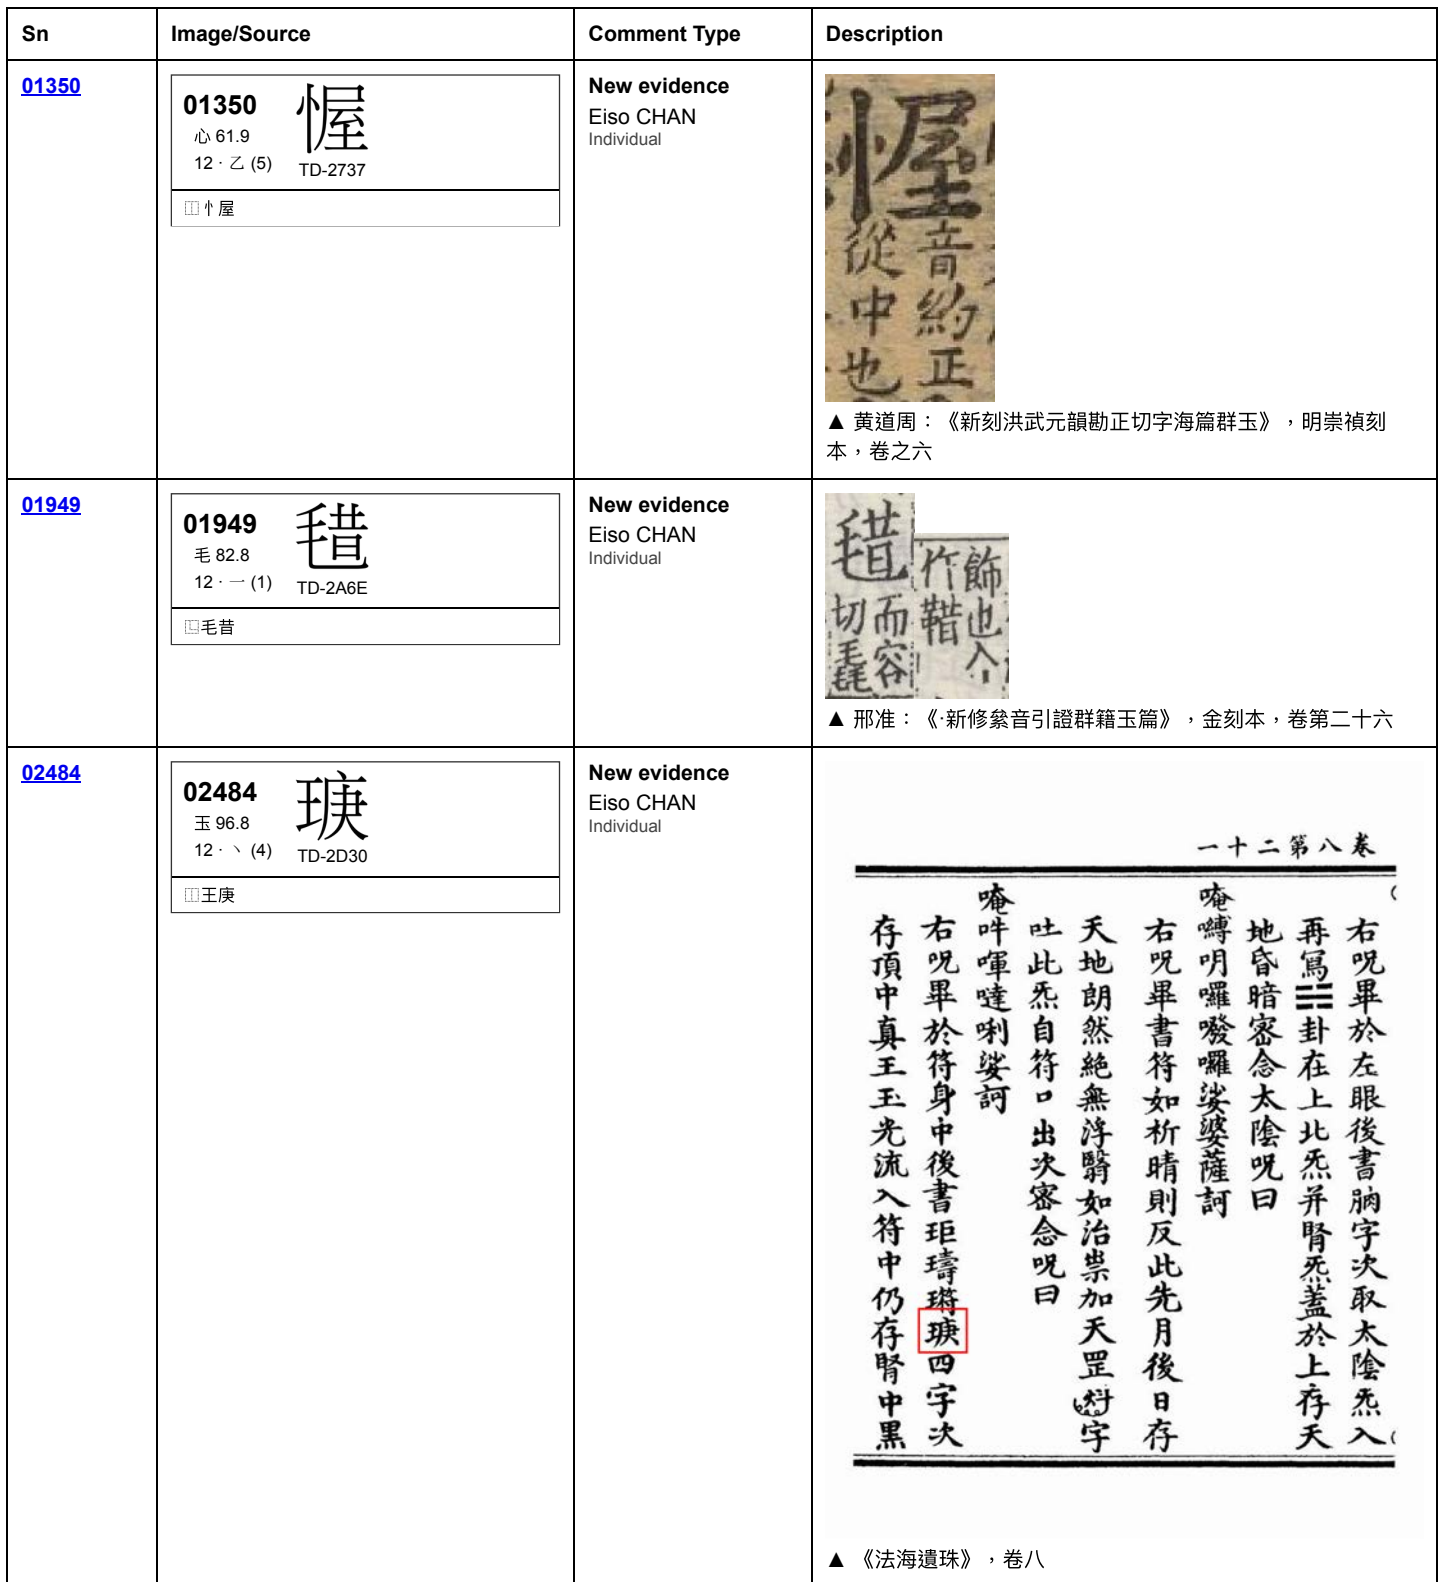 Sn Image/Source Comment Type Description
01350
01350
心 61.9
12 · 乙 (5)
TD-2737
⿰忄屋
New evidence
Eiso CHAN
Individual
音約正
從中也
▲ 黄道周：《新刻洪武元韻勘正切字海篇群玉》，明崇禎刻
本，卷之六
01949
01949
毛 82.8
12 · 一 (1)
TD-2A6E
⿺毛昔
New evidence
Eiso CHAN
Individual
而容
切毛毛
飾也入
作鞜
▲ 邢准：《·新修絫音引證群籍玉篇》，金刻本，卷第二十六
02484
02484
玉 96.8
12 · 丶 (4)
TD-2D30
⿰王庚
New evidence
Eiso CHAN
Individual
卷八第二十一
右呪畢於左眼後書朒字次取太陰炁入
再寫☷卦在上北炁并腎炁蓋於上存天
地昏暗密念太陰呪曰
唵嚩明囉發囉娑婆薩訶
右呪畢書符如祈晴則反此先月後日存
天地朗然絶無浮翳如治祟加天罡字
吐此炁自符口出次密念呪曰
唵吽㗲噠唎娑訶
右呪畢於符身中後書玨璹四字次
存頂中真王玉光流入符中仍存腎中黑
▲ 《法海遺珠》，卷八